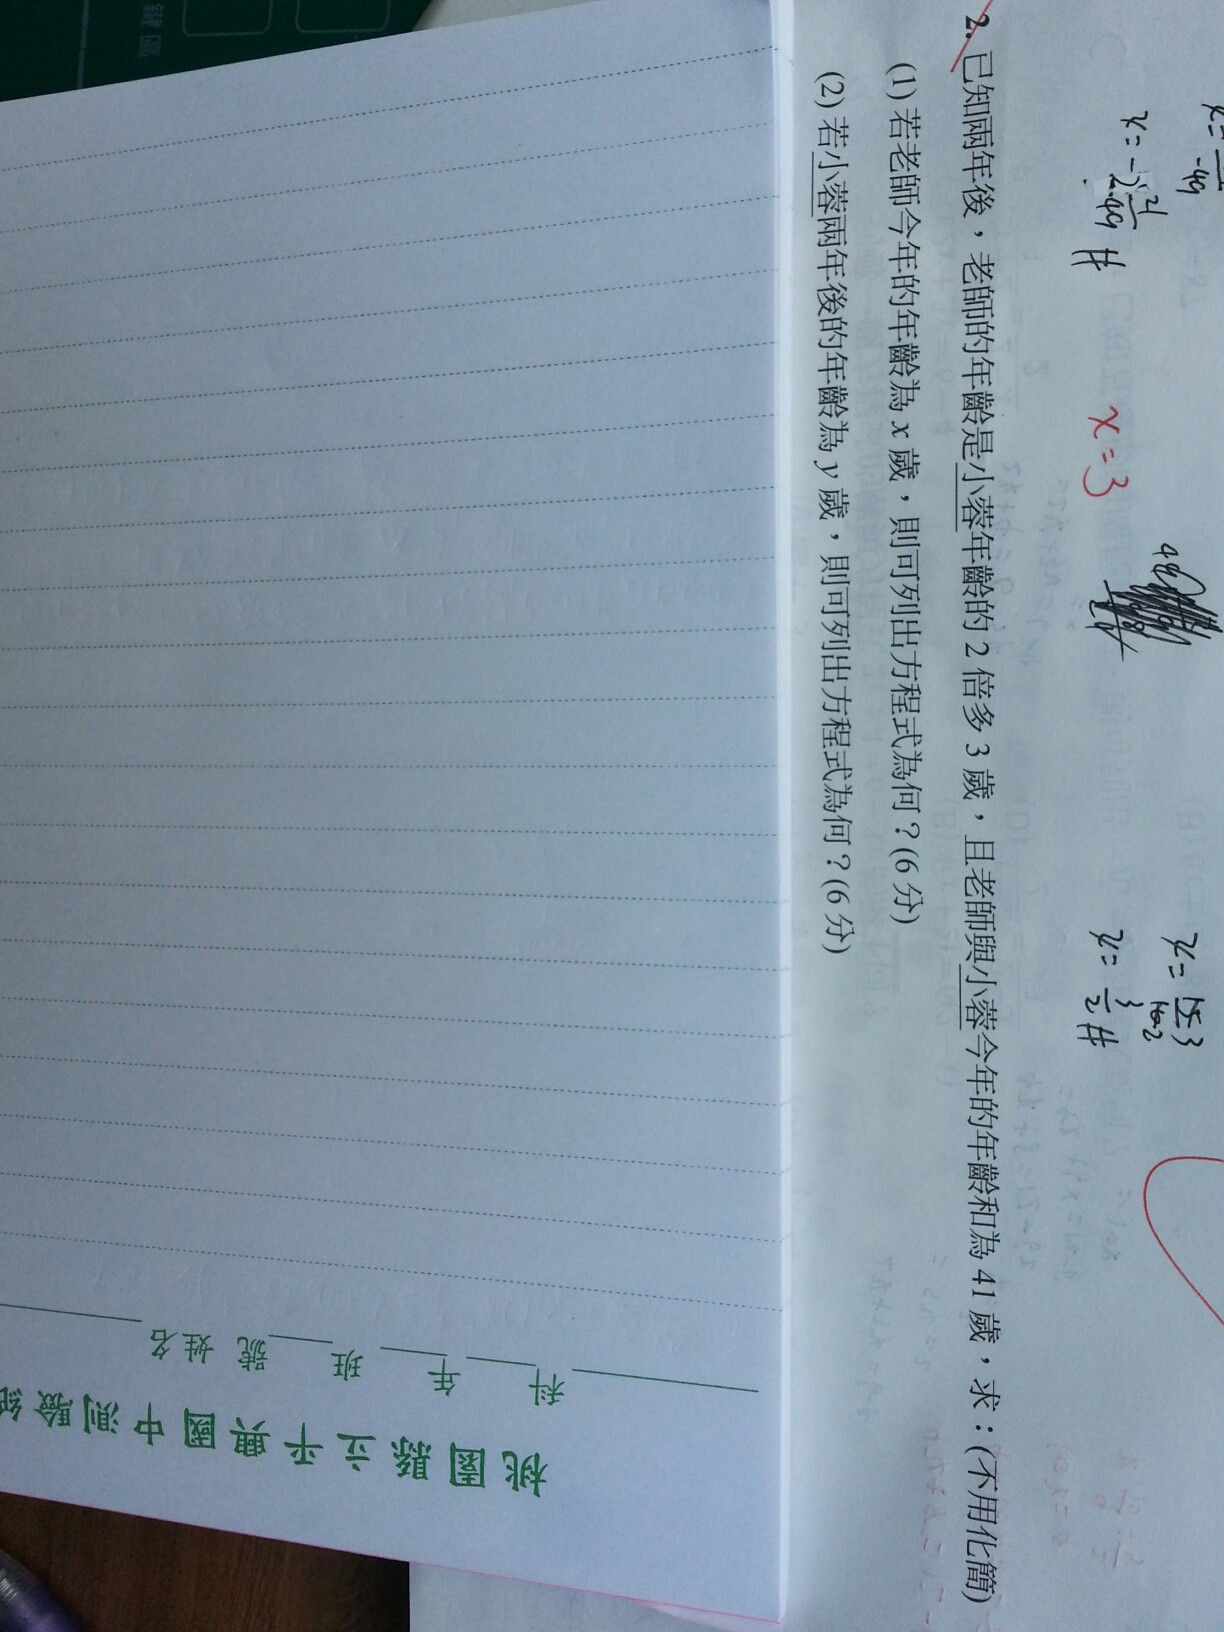 x=
-49
x=-2 21/49 #
x=3
x= 15 3
10 2
x= 3/2 #
2. 已知兩年後，老師的年齡是小蓉年齡的 2 倍多 3 歲，且老師與小蓉今年的年齡和為 41 歲，求：(不用化簡)
(1) 若老師今年的年齡為 x 歲，則可列出方程式為何？(6 分)
(2) 若小蓉兩年後的年齡為 y 歲，則可列出方程式為何？(6 分)
桃園縣立平興國中測驗紙
科 年 班 號 姓名
鍵區